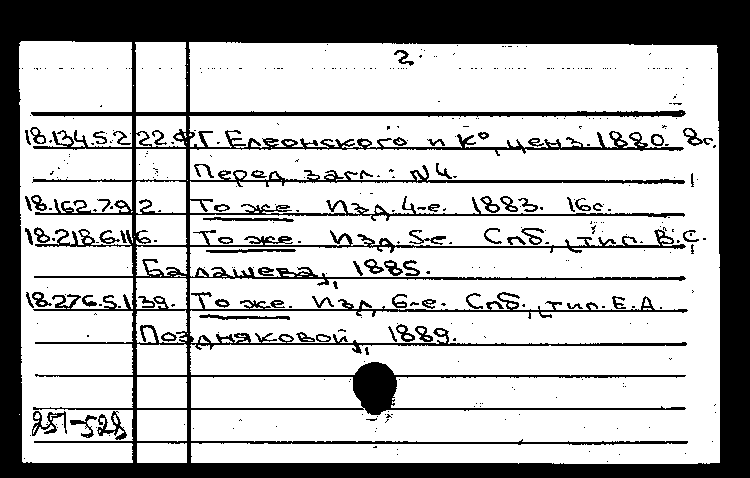 2.
18.134.5.2 22. Ф.Г. Елеонского и К°, ценз. 1880. 8с.
Перед загл.: N4.
18.162.7.9 2. То же. Изд. 4-е. 1883. 16с.
18.218.6.11 6. То же. Изд. 5-е. Спб., тип. В.С.
Балашева, 1885.
18.276.5.1 39. То же. Изд. 6-е. Спб., тип. Е.А.
Поздняковой, 1889.
251-528